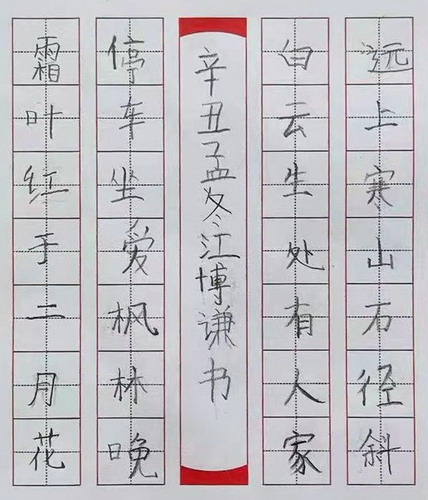 远上寒山石径斜
白云生处有人家
停车坐爱枫林晚
霜叶红于二月花
辛丑孟冬江博谦书